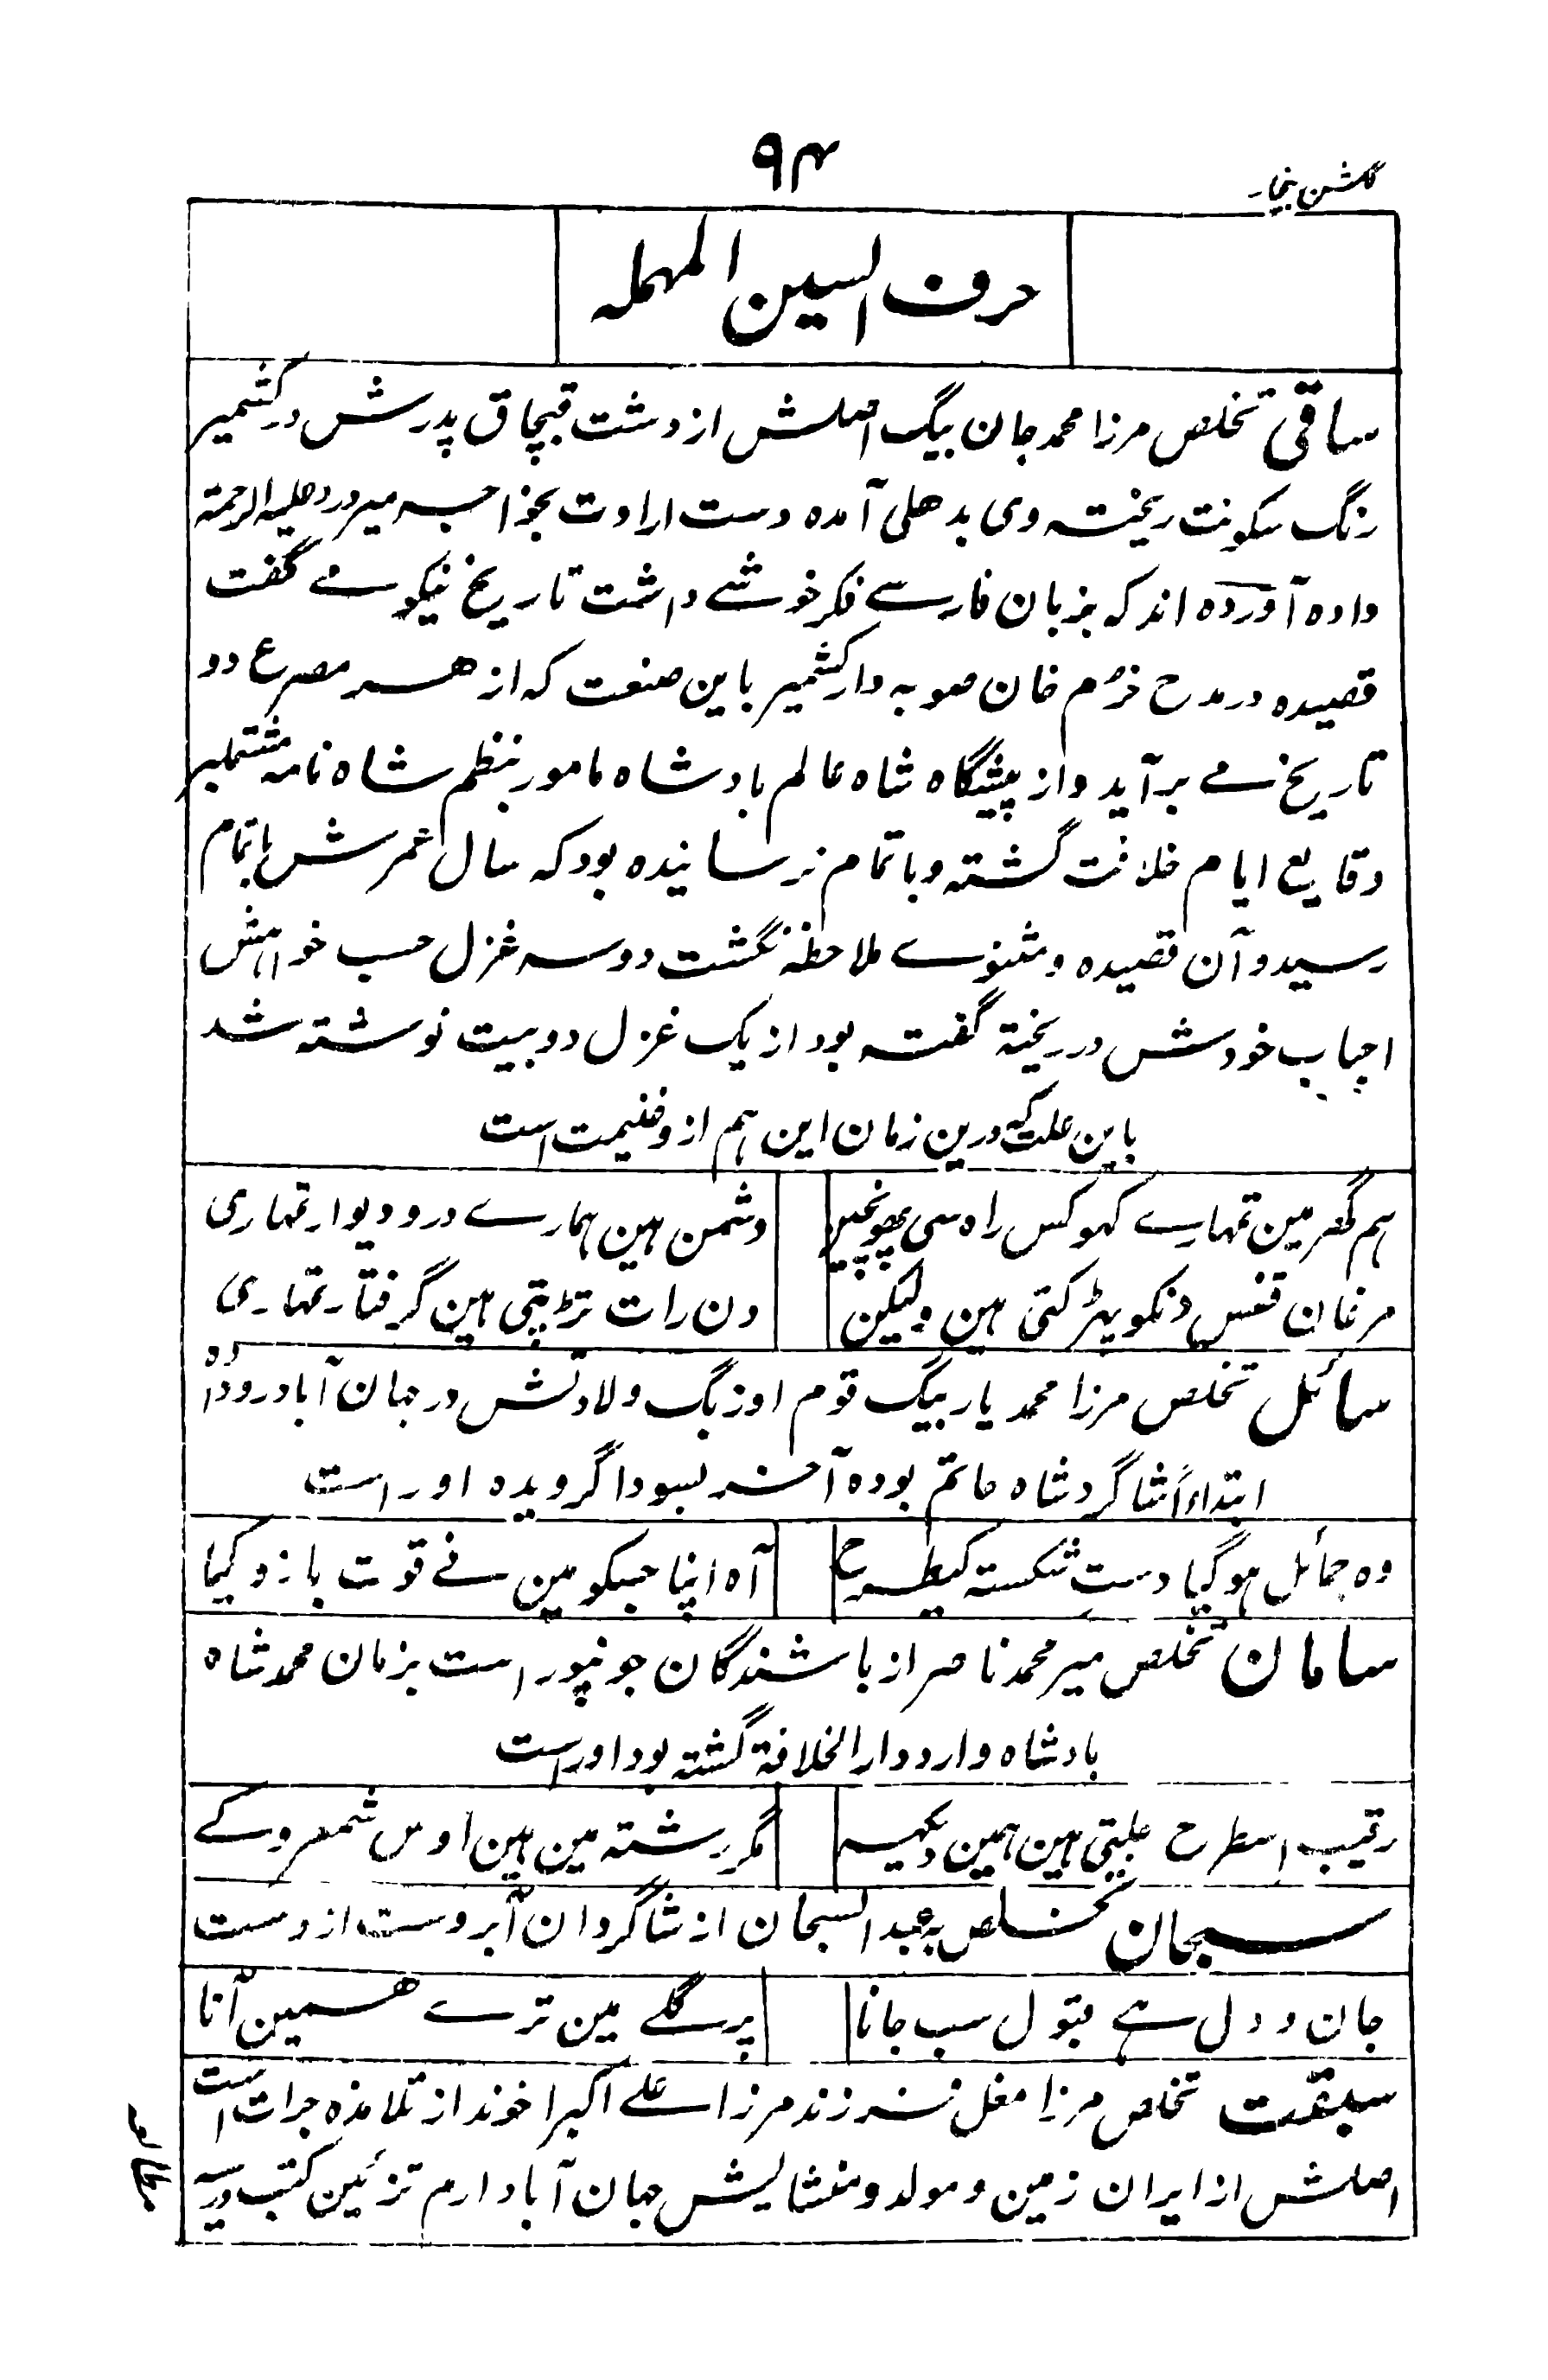 ۹۴
گلشن بیخار
حرف السین المهمله
ساقی تخلص مرزا محمد جان بیگ اصلش از دشت قبچاق پدرش در کشمیر
رنگ سکونت ریخته وی بدهلی آمده دست ارادت بخواجه میر درد علیه الرحمة
داده آورده اند که بزبان فارسے فکر خوشے داشت تاریخ نیکو مے گفت
قصیده در مدح خرم خان صوبه دار کشمیر باین صنعت که از هر مصرع دو
تاریخ مے برآید و از پیشگاه شاه عالم بادشاه مامور بنظم شاه نامه مشتملبر
وقایع ایام خلافت گشته و باتمام نرسانیده بود که سال عمرش باتمام
رسید و آن قصیده و مثنوے ملاحظه نگشت دو سه غزل حسب خواهش
احباب خودش در ریخته گفته بود از یک غزل دو بیت نوشته شد
باین علت که درین زمان این هم از و غنیمت است
هم گھر مین تمہارے کہو کس راہ سی پھونچین
دشمن ہین ہمارے در و دیوار تمہاری
مرغان قفس دنکو پھڑکتی ہین ولیکن
دن رات تڑپتی ہین گرفتار تمہاری
سائل تخلص مرزا محمد یار بیگ قوم اوزبگ ولادتش در جهان آباد رو داده
ابتداءً شاگرد شاه حاتم بوده آخر بسودا گرویده اوراست
وہ حمائل ہو گیا دستِ شکستہ کیطرح
آہ اپنا جسکو مین نے قوت بازو کیا
سامان تخلص میر محمد ناصر از باشندگان جونپور است بزمان محمد شاه
بادشاه وارد دار الخلافة گشته بود اوراست
رقیب اسطرح جلتی ہین ہمین دیکہہ
مگر رشتہ مین ہین اوس شمعرو کے
سبحان تخلص به عبد السبحان از شاگردان آبروست ازوست
جان و دل سے قبول سب جانا
پر گلے مین ترے ہمین آنا
سبقت تخلص مرزا مغل فرزند مرزا علے اکبر اخوند از تلامذه جرات است
اصلش از ایران زمین و مولد و منشایش جهان آباد ارم تزئین کتب درسیه
مطالعه